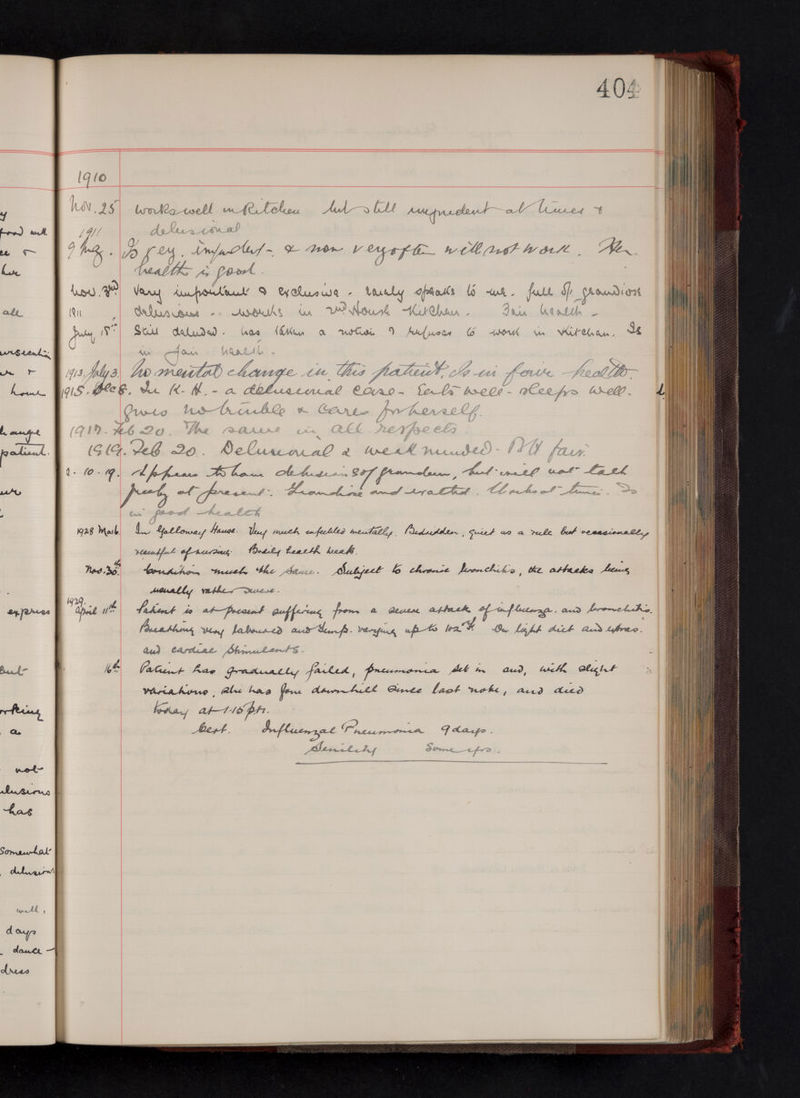 404
1910
Nov. 25 Works well in Kitchen but still impudent at times &
1911 delusional
9 Aug. Is very impudent - & now very often will not work. Her
health is good.
Nov. 3rd Very important & exclusive - rarely speaks to me. full of grandiose
1911 delusions - works in 2nd House Kitchen. Fair health.
July 15th Still deluded. has taken a notion & refuses to work in Kitchen. Is
in fair health.
1913. July 3. No mental change in this patient. Is in fair health.
1915. Dec 8. In K. H. - a delusional case - Eats well - sleeps well.
Gives no trouble & cares for herself.
1917. Feb 20. The same in all respects.
1919. Feb. 20. Delusional & weak minded. BH fair.
2. 10. 19. Appears to have delusions of grandeur, but will not talk
freely at present. Grandiose and exalted. Works at times. Is
in good health
1928 Mar 6. In Galloway House. Very much enfeebled mentally. Bedridden, quiet as a rule but occasionally
resentful of nursing. Bodily health weak.
Nov. 30th. Condition much the same. Subject to chronic bronchitis, the attacks being
usually rather severe.
1929.
April 11th Patient is at present suffering from a severe attack of influenza and bronchitis.
Breathing very laboured and temp. varying up to 102°F. On light diet and extras
and cardiac stimulants.
16th Patient has gradually failed, pneumonia set in and, with slight
variations, she has gone downhill since last note, and died
today at 1.15 pm.
Cert. Influenzal Pneumonia 9 days.
Senility Some yrs.
y
food well
her
all
home
change
patient.
express
but
working
as
not
delusions
has
Somewhat
delusions
well,
days
dance
dress